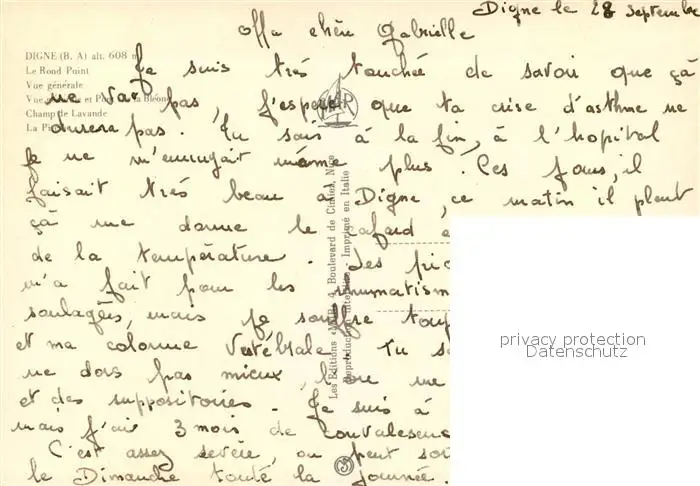 Digne le 28 Septembre
chère Gabrielle
DIGNE (B. A) alt. 608 m
Le Rond Point
Vue générale
Champ de Lavande
Je suis très touchée de savoir que çà
ne va pas, j'espère que ta crise d'asthme ne
durera pas. Tu sais à la fin, à l'hopital
je ne m'ennuyait même plus. Ces jours, il
faisait très beau à Digne, ce matin il pleut
çà me donne le cafard
de la température. Les
m'a fait pour les rhumatism
soulagées, mais je souffre touj
et ma colonne Vertébrale. Tu
ne dors pas mieux, on me
et des suppositoires. Je suis à
mais j'ai 3 mois de convalescen
C'est assez sevère, on peut
le Dimanche touté la journée.
Les Editions 4, Boulevard de Cimiez, Nice
Reproduction interdite - Imprimé en Italie
privacy protection
Datenschutz